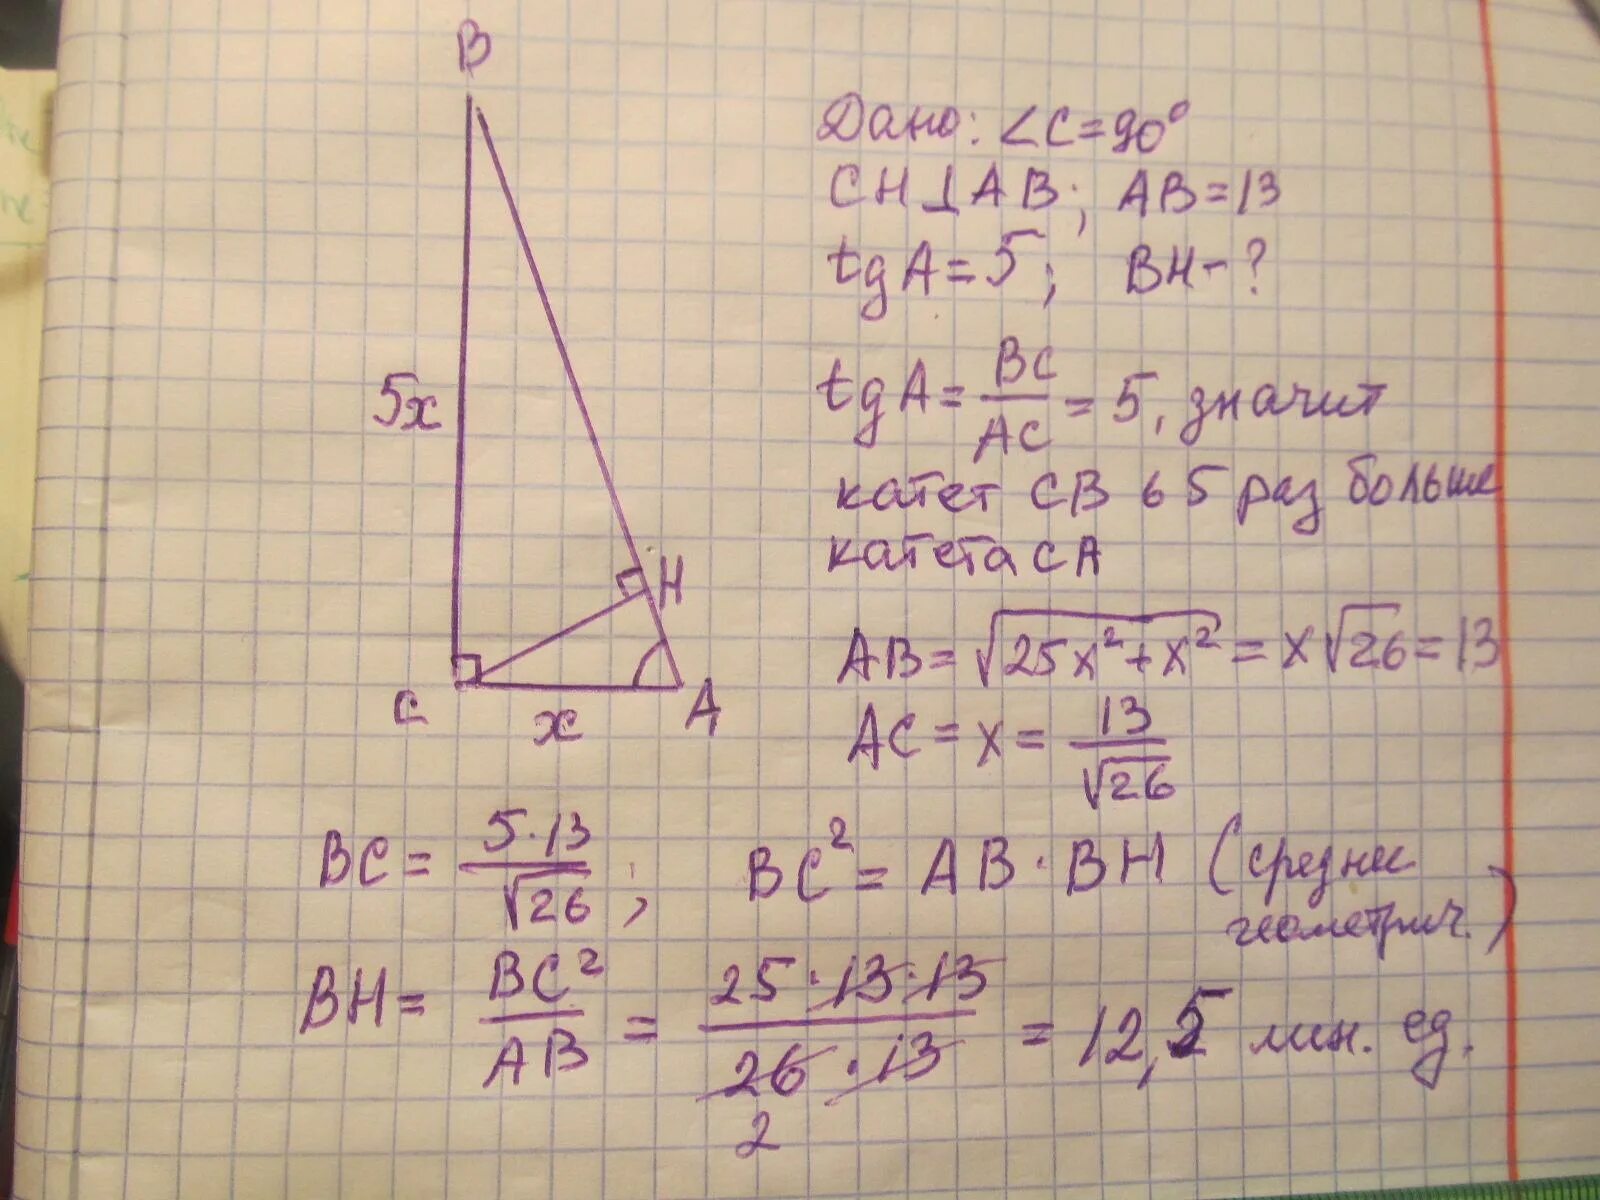 B
5x
H
C
x
A
Дано: ∠C=90°
CH⊥AB; AB=13
tgA=5; BH-?
tgA= BC/AC = 5, значит
катет CB в 5 раз больше
катета CA
AB=√(25x²+x²) = x√26=13
AC=x= 13/√26
BC= 5·13/√26; BC²= AB·BH (средние
геометрич.)
BH= BC²/AB = 25·13·13/26·13 = 12,5 лин. ед.
2